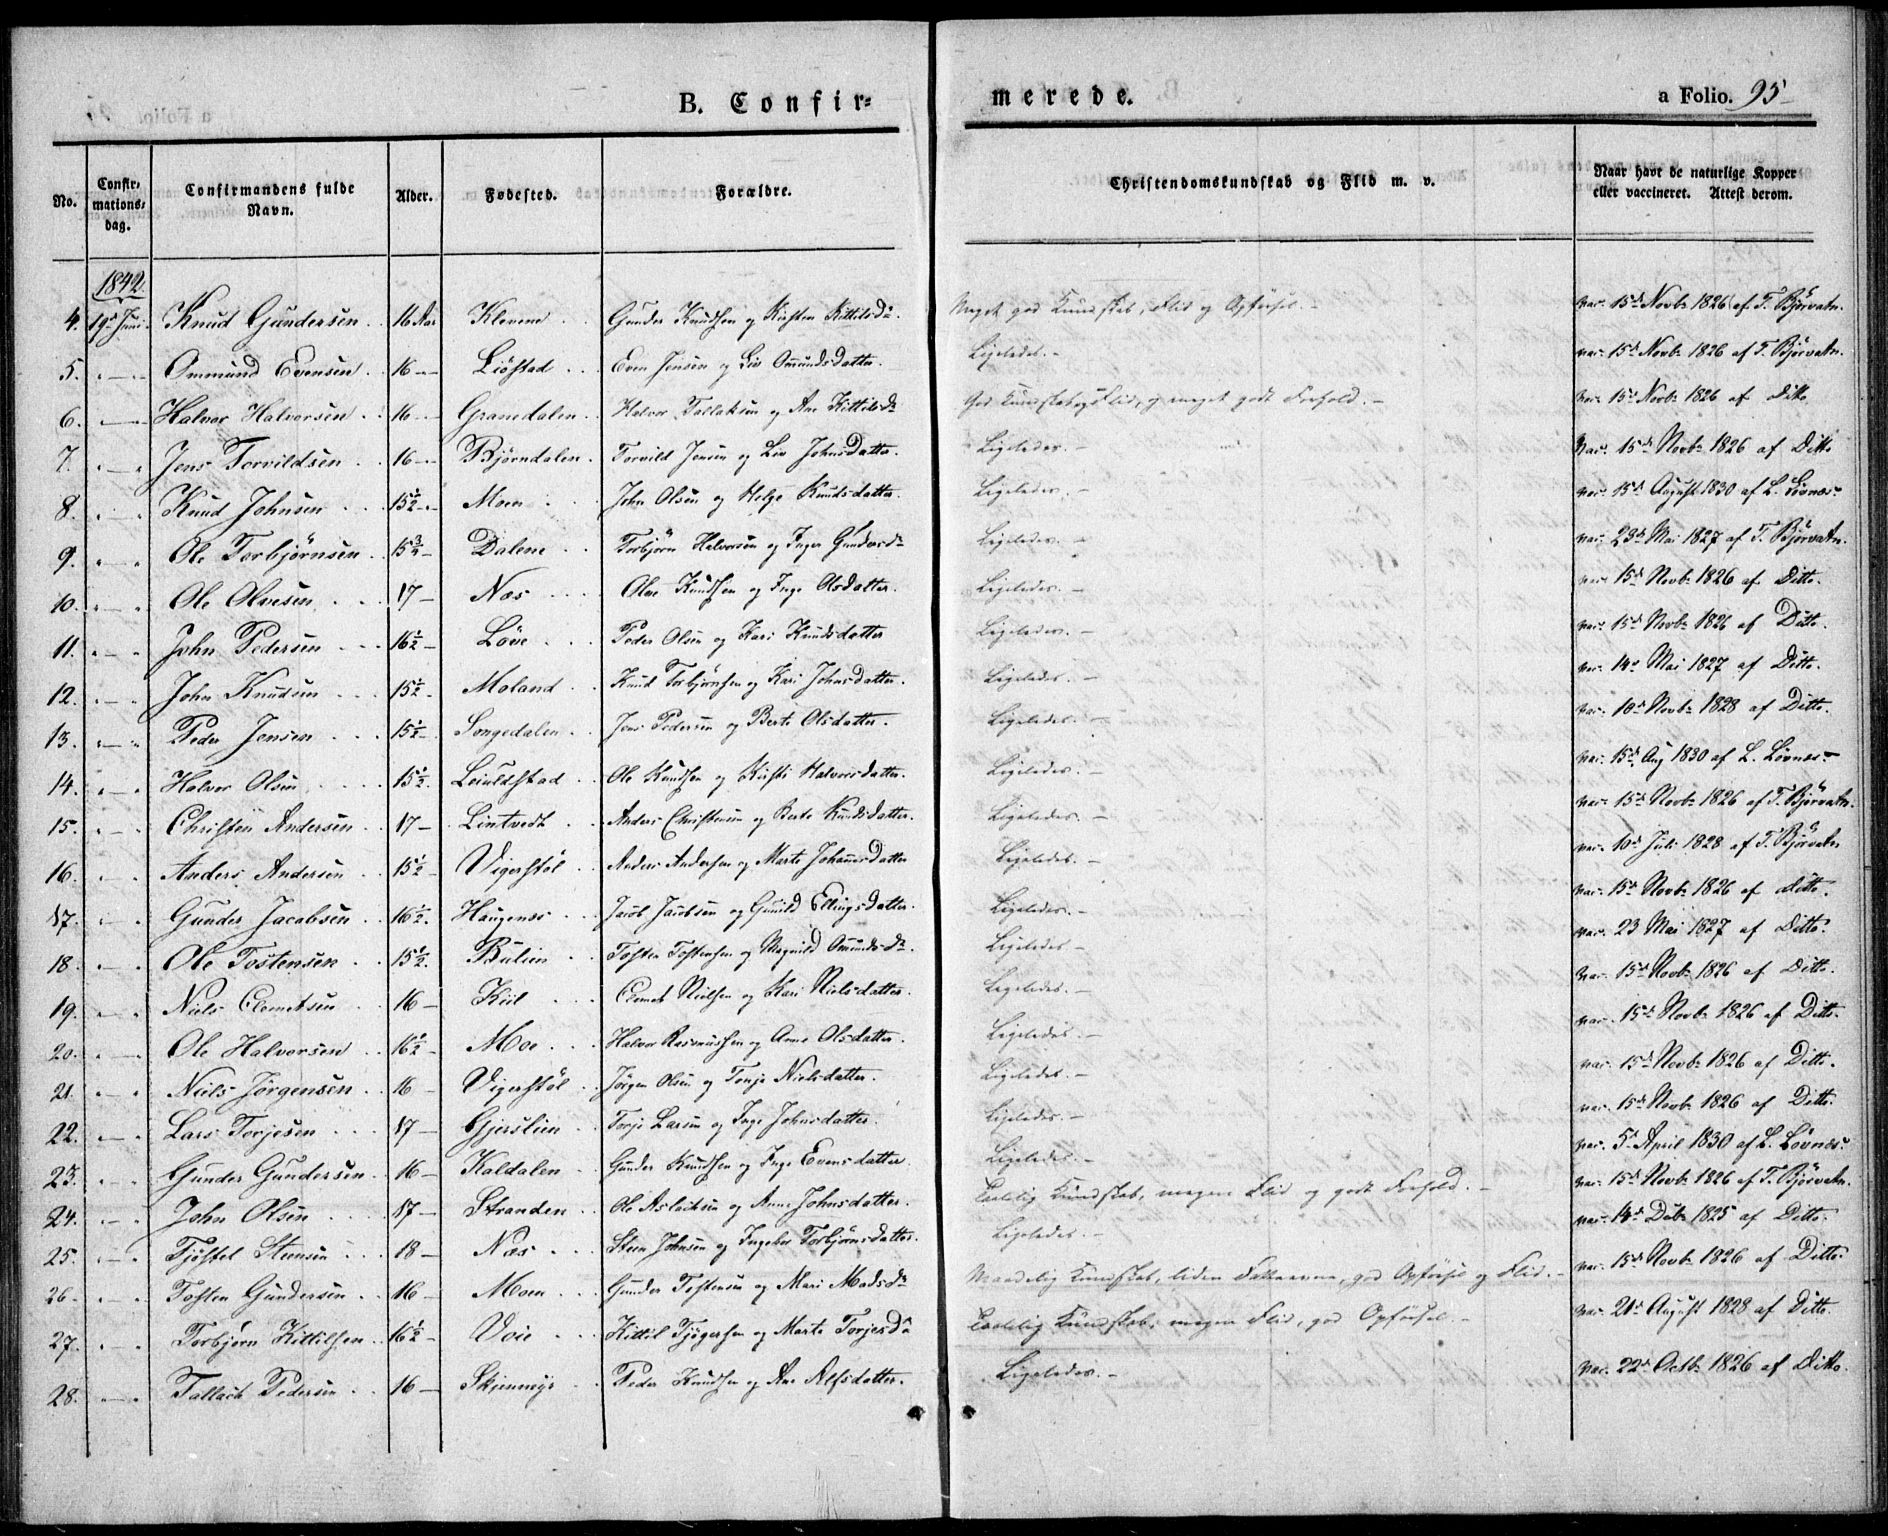 B. Confir=
merede.
a Folio. 95
No.
Confir-
mations-
dag.
Confirmandens fulde
Navn.
Alder.
Fødested.
Forældre.
Christendomskundskab og Flid m. v.
Naar havt de naturlige Kopper
eller vaccineret. Attest derom.
1842.
4. 19de Juni Knud Gundersen 16 Aar Klevene Gunder Knudsen og Kirsten Kittilsdr. Meget god Kundskab, Flid og Opførsel. - vac. 15de Novbr 1826 af T. Bjørvatn.
5. " — " Ommund Evensen 16 — Liøstad Even Jensen og Liv Omunds Datter. Ligeledes. - vac. 15de Novbr 1826 af T. Bjørvatn.
6. — Halvor Halvorsen 16 — Granedalen Halvor Tallaksen og Ane Kittilsdr God Kundskab og Flid, og meget godt Forhold. - vac. 15de Novbr 1826 af Ditto
7. " — " Jens Torvildsen 16 — Bjørndalen Torvild Jensen og Liv Johns Datter. Ligeledes. - vac. 15de Novbr 1826 af Ditto
8. " — " Knud Johnsen 15½ — Moen John Olsen og Helge Knudsdatter. Ligeledes. - vac. 15de August 1830 af L. Løvnes.
9. " — " Ole Torbjørnsen 15¾ — Dalene Torbjørn Halvorsen og Inger Gundersdr Ligeledes. - vac. 23de Mai 1827 af T. Bjørvatn.
10. " — " Ole Olvesen 17 — Næs Olve Knudsen og Inge Olsdatter. Ligeledes. - vac. 15de Novbr 1826 af Ditto.
11. " — " John Pedersen 16½ — Løve Peder Olsen og Kari Knudsdatter Ligeledes. - vac. 15de Novbr 1826 af Ditto.
12. " — " John Knudsen 15½ — Moland Knud Torbjørnsen og Kari Johnsdatter. Ligeledes. - vac. 14de Mai 1827 af Ditto.
13. " — " Peder Jensen 15½ — Songedalen Jens Pedersen og Berte Olsdatter. Ligeledes. - vac. 10de Novbr 1828 af Ditto.
14. " — " Halvor Olsen 15½. Leiuldstad Ole Knudsen og Kirsti Halvorsdatter. Ligeledes. - vac. 15de Aug 1830 af L. Løvnes.
15. " — " Christen Andersen 17 — Lintvedt Anders Christensen og Berte Knudsdatter. Ligeledes. - vac. 15de Novbr 1826 af T. Bjørvatn.
16. " — " Anders Andersen 15½ — Vigerstøl Anders Andersen og Marte Johannesdatter Ligeledes. - vac. 10de Juli 1828 af T. Bjørvatn
17. " — " Gunder Jacobsen 16½. Haugenes Jacob Jacobsen og Gunild Ellings datter. Ligeledes. - vac. 15de Novbr 1826 af ditto.
18. " — " Ole Tostensen 15½. Bulien Tosten Tostensen og Magnild Omundsdr. Ligeledes - vac. 23 Mai 1827 af Ditto.
19. " — " Niels Clemetsen 16 — Kiil Clemet Nielsen og Kari Nielsdatter. Ligeledes. - vac. 15de Novbr 1826 af Ditto.
20. " — " Ole Halvorsen 16½ — Moe Halvor Rasmussen og Anne Olsdatter. Ligeledes. - vac. 15de Novbr 1826 af Ditto.
21. " — " Niels Jørgensen 16 — Vigerstøl Jørgen Olsen og Tonje Nielsdatter. Ligeledes. - vac. 15de Novbr 1826 af Ditto.
22. " — " Lars Torjesen 17 — Gjerslien Torje Larsen og Inge Johnsdatter. Ligeledes. - vac. 15de Novbr 1826 af Ditto.
23. " — " Gunder Gundersen 16 — Kaldalen Gunder Knudsen og Inge Evensdatter Ligeledes. - vac. 5te April 1830 af L. Løvnes.
24. " — " John Olsen 17 — Stranden Ole Aslacksen og Anne Johnsdatter. Taalelig Kundskab, megen Flid og godt Forhold. - vac. 15de Novbr 1826 af T. Bjørvatn.
25. " — " Tjøstel Steensen 18 — Næs Steen Johnsen og Ingebor Torbjørnsdatter. Ligeledes. - vac. 14de Debr 1825 af Ditto.
26. " — " Tosten Gundersen 16 — Moen Gunder Tostensen og Mari Madsdr Maadelig Kundskab, liden Fatteevne, god Opførsel og Flid. - vac. 15de Novbr 1826 af Ditto
27. " — " Torbjørn Kittilsen 16½ — Voie Kittil Tjøgersen og Marte Torjesdr Taalelig Kundskab, megen Flid, god Opførsel. - vac. 21de August 1828 af Ditto.
28. " — " Tallach Pedersen 16 — Skjennmyr Peder Knudsen og Ane Alfsdatter. Ligeledes. - vac. 22de Octbr 1826 af Ditto.